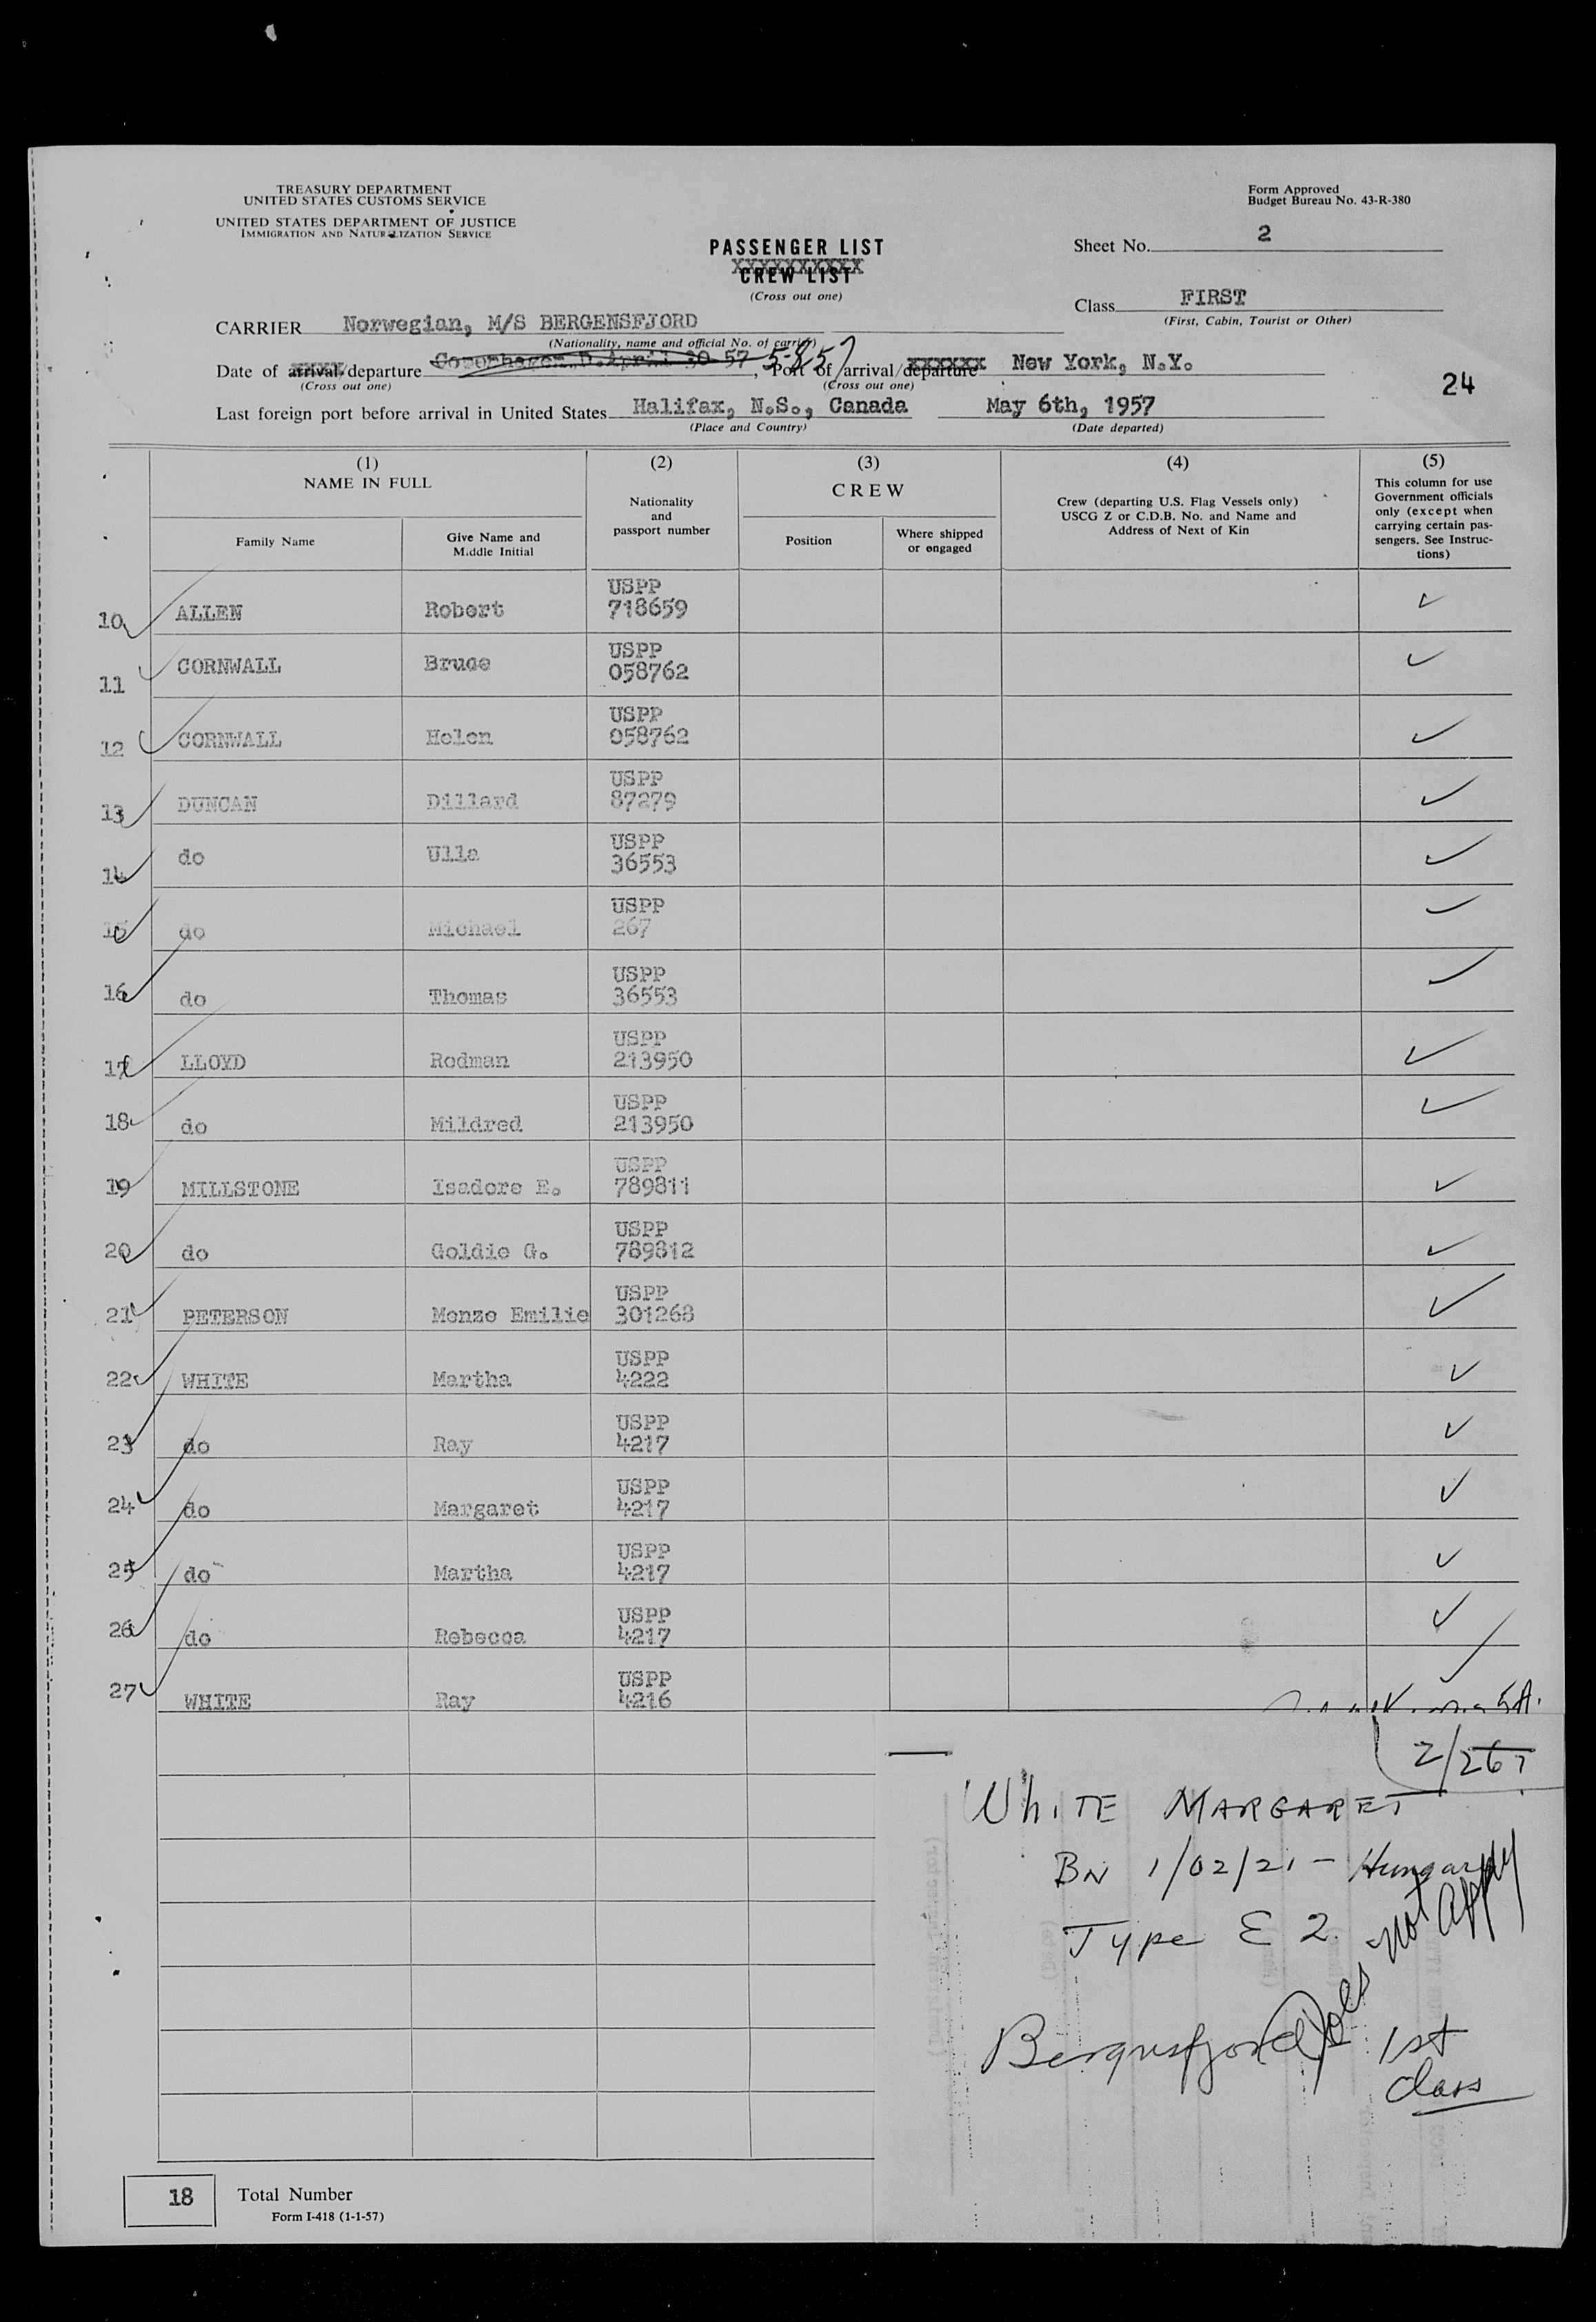 TREASURY DEPARTMENT
UNITED STATES CUSTOMS SERVICE
UNITED STATES DEPARTMENT OF JUSTICE
IMMIGRATION AND NATURALIZATION SERVICE
Form Approved
Budget Bureau No. 43-R-380
PASSENGER LIST
CREW LIST
(Cross out one)
Sheet No. 2
Class FIRST
(First, Cabin, Tourist or Other)
CARRIER Norwegian, M/S BERGENSFJORD
(Nationality, name and official No. of carrier)
Date of arrival/departure Copenhagen, D. April 30-57 5-8-57, Port of arrival/departure New York, N.Y.
(Cross out one) (Cross out one)
24
Last foreign port before arrival in United States Halifax, N.S., Canada May 6th, 1957
(Place and Country) (Date departed)
(1) (2) (3) (4) (5)
NAME IN FULL
Family Name
Give Name and Middle Initial
Nationality and passport number
CREW
Position
Where shipped or engaged
Crew (departing U.S. Flag Vessels only)
USCG Z or C.D.B. No. and Name and
Address of Next of Kin
This column for use
Government officials
only (except when
carrying certain pas-
sengers. See Instruc-
tions)
10 ALLEN Robert USPP 718659
11 CORNWALL Bruce USPP 058762
12 CORNWALL Helen USPP 058762
13 DUNCAN Dillard USPP 87279
14 do Ulla USPP 36553
15 do Michael USPP 267
16 do Thomas USPP 36553
17 LLOYD Rodman USPP 213950
18 do Mildred USPP 213950
19 MILLSTONE Isadore E. USPP 789811
20 do Goldie G. USPP 789812
21 PETERSON Monzo Emilie USPP 301268
22 WHITE Martha USPP 4222
23 do Ray USPP 4217
24 do Margaret USPP 4217
25 do Martha USPP 4217
26 do Rebecca USPP 4217
27 WHITE Ray USPP 4216
5A.
2/267
WhITE MARGARET
BN 1/02/21 - Hungary
Type E 2.
Does not apply
Bergensfjord 1st
class
18 Total Number
Form I-418 (1-1-57)